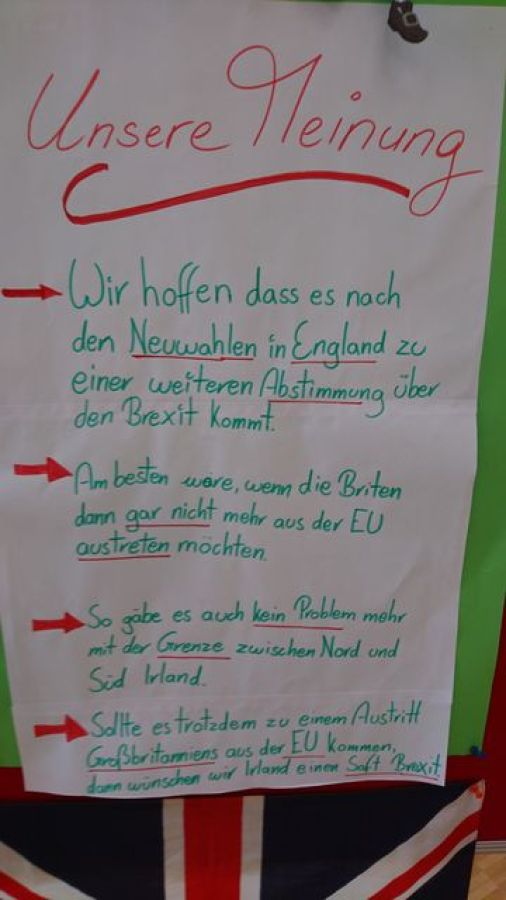 Unsere Meinung
Wir hoffen dass es nach
den Neuwahlen in England zu
einer weiteren Abstimmung über
den Brexit kommt.
Am besten wäre, wenn die Briten
dann gar nicht mehr aus der EU
austreten möchten.
So gäbe es auch kein Problem mehr
mit der Grenze zwischen Nord und
Süd Irland.
Sollte es trotzdem zu einem Austritt
Großbritanniens aus der EU kommen,
dann wünschen wir Irland einen Saft Brexit.